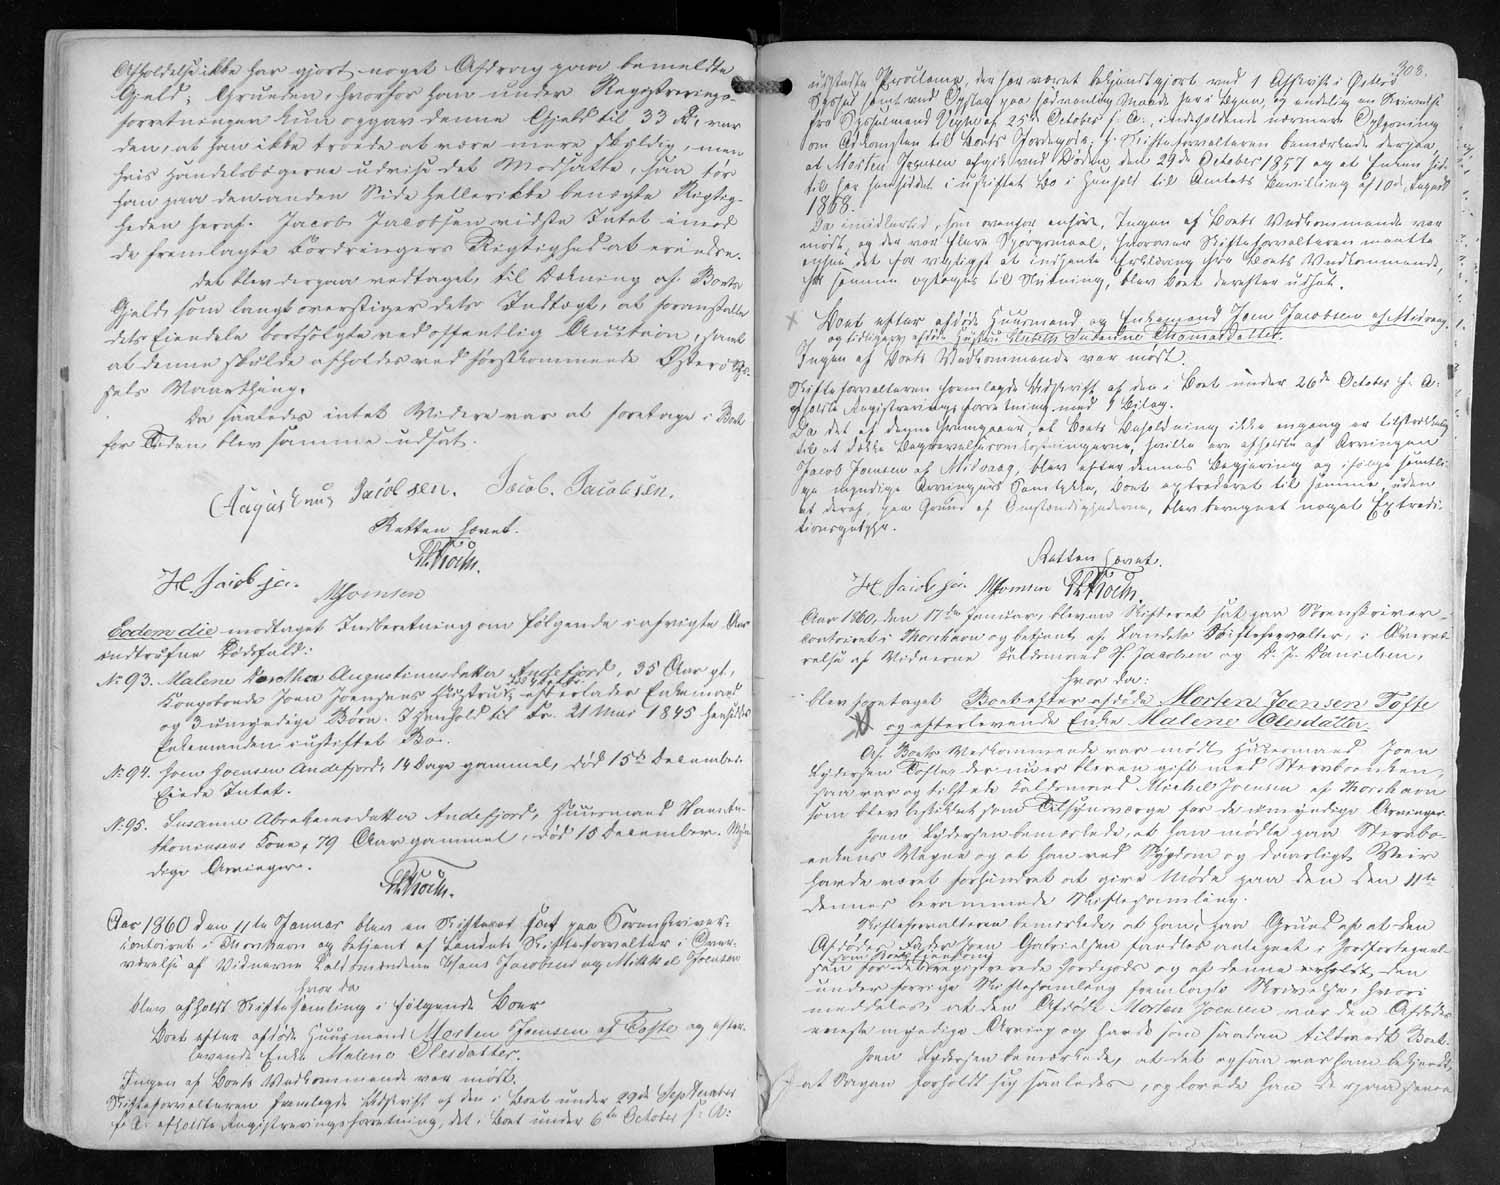 Afholdelse ikke har gjort noget Afdrag paa bemeldte
Gjeld; Grunden, hvorfor han under Registrerings-
forretningen kun opgav denne Gjeld til 33 Rd., var
den, at han ikke troede at være mere skyldig, men
hvis Handelsbøgerne udviste det Modsatte, saa tør
han paa den anden Side heller ikke benægte Rigtig-
heden heraf. Jacob Jacobsen vidste Intet imod
de fremlagte Fordringers Rigtighed at erindre.
Det blev derpaa vedtaget, til Dækning af Boets
Gjeld, som langt overstiger dets Indtægt, at foranstalte
dets Eiendele bortsolgte ved offentlig Auction, samt
at denne skulde afholdes ved førstkommende Østerø Sys-
sels Vaarthing.
Da saaledes intet Videre var at foretage i Boet
for Tiden blev samme udsat.
Jacobsen. Jacob. Jacobsen.
Retten hævet.
H. Jacobsen. MJoensen
Eodem die modtaget Indberetning om følgende i afvigte Aar
indtrufne Dødsfald:
No 93. Malene Dorothea Augustinusdatter Andefjord, 35 Aar gl.,
Kongsbonde Joen Joensens Hustru, efterlader Enkemand
og 3 umyndige Børn. I Henhold til Fr. 21 Mai 1845 hensidder
Enkemanden i uskiftet Bo.
No 94. Joen Joensen Andefjord, 14 Dage gammel, død 15de December.
Eiede Intet.
No 95. Susanne Abrahamsdatter Andefjord, Huusmand Hans An-
thoniesens Kone, 79 Aar gammel, død 15 December. Myn-
dige Arvinger.
Aar 1860 den 11te Januar blev en Skifteret sat paa Sorenskriver-
contoiret i Thorshavn og betjent af Landets Skifteforvalter i Over-
værelse af Vidnerne Laugmændene Hans Jacobsen og Mikkel Joensen
hvor da
blev afholdt Skiftesamling i følgende Boer
Boet efter afdøde Huusmand Morten Joensen af Tofte og efter-
levende Enke Malene Olesdatter.
Ingen af Boets Vedkommende var mødt.
Skifteforvalteren fremlagde Udskrift af den i Boet under 29de September
f. A. afholdte Registreringsforretning, det i Boet under 6te October f. A.
308.
udstædte Proclama, der har været bekjendtgjort ved 1 Afskrift i Østerø
Syssel samt ved Opslag paa sædvanlig Maade her i Byen, og endelig en Skrivelse
fra Sysselmand af 25de October f. A., indeholdende nærmere Oplysning
om Adkomsten til Boets Jordegods. Skifteforvalteren bemærkede derpaa,
at Morten Joensen afgik ved Døden den 29de October 1857 og at Enken sid-
til her hensiddet i uskiftet Bo i Henhold til Amtets Bevilling af 10de August
1858.
Da imidlertid, som ovenfor anført, Ingen af Boets Vedkommende var
mødt, og der var flere Spørgsmaal, hvorover Skifteforvalteren maatte
ansee det for vigtigst at indhente Erklæring fra Boets Vedkommende,
før samme optages til Slutning, blev Boet derefter udsat.
Boet efter afdøde Huusmand og Enkemand Joen Jacobsen af Midvaag
og tidligere afdøde Hustru Elsebeth Susanne Thomasdatter.
Ingen af Boets Vedkommende var mødt.
Skifteforvalteren fremlagde Udskrift af den i Boet under 26de October f. A.
afholdte Registreringsforretning med 1 Bilag.
Da det af denne fremgaaer, at Boets Beholdning ikke engang er tilstrækkelig
til at dække Begravelsesomkostningerne, hvilke ere afholdte af Arvingen
Jacob Joensen af Midvaag, blev efter dennes Begjæring og ifølge samtli-
ge myndige Arvingers Samtykke, Boet extraderet til samme, uden
at deraf, paa Grund af Omstændighederne, blev beregnet noget Extradi-
tionsgebyhr.
Retten hævet.
H. Jacobsen. MJoensen
Aar 1860, den 17de Januar, blev en Skifteret sat paa Sorenskriver-
contoiret i Thorshavn og betjent af Landets Skifteforvalter, i Overvæ-
relse af Vidnerne Laugmænd H. Jacobsen og D. P. Danielsen,
hvor da:
blev foretaget Boet efter afdøde Morten Joensen Tofte
og efterlevende Enke Malene Olesdatter.
Af Boets Vedkommende var mødt Huusmand Joen
Lydersen Tofte, der nu er bleven gift med Stervboenken,
saa var og tilstede Laugmand Michel Joensen af Thorshavn
som blev beskikket som Tilsynsværge for de umyndige Arvinger.
Joen Lydersen bemærkede, at han mødte paa Stervbo-
enkens Vegne og at han ved Sygdom og daarligt Veir
havde været forhindret at give Møde paa den den 11te
dennes berammede Skiftesamling.
Skifteforvalteren bemærkede, at han, paa Grund af at den
Afdødes Fader Joen Gabrielsen fandtes antegnet i Jordfortegnel-
sen for det registrerede Jordegods og af denne erholdt den
som Boets Eiendom
under forrige Skiftesamling fremlagte Skrivelse, hvori
meddeles, at den Afdøde Morten Joensen var den Afdødes
eneste myndige Arving og havde som saadan tiltraadt Boet.
Joen Lydersen bemærkede, at det ogsaa var ham bekjendt,
at Sagen forholdt sig saaledes, og lovede han